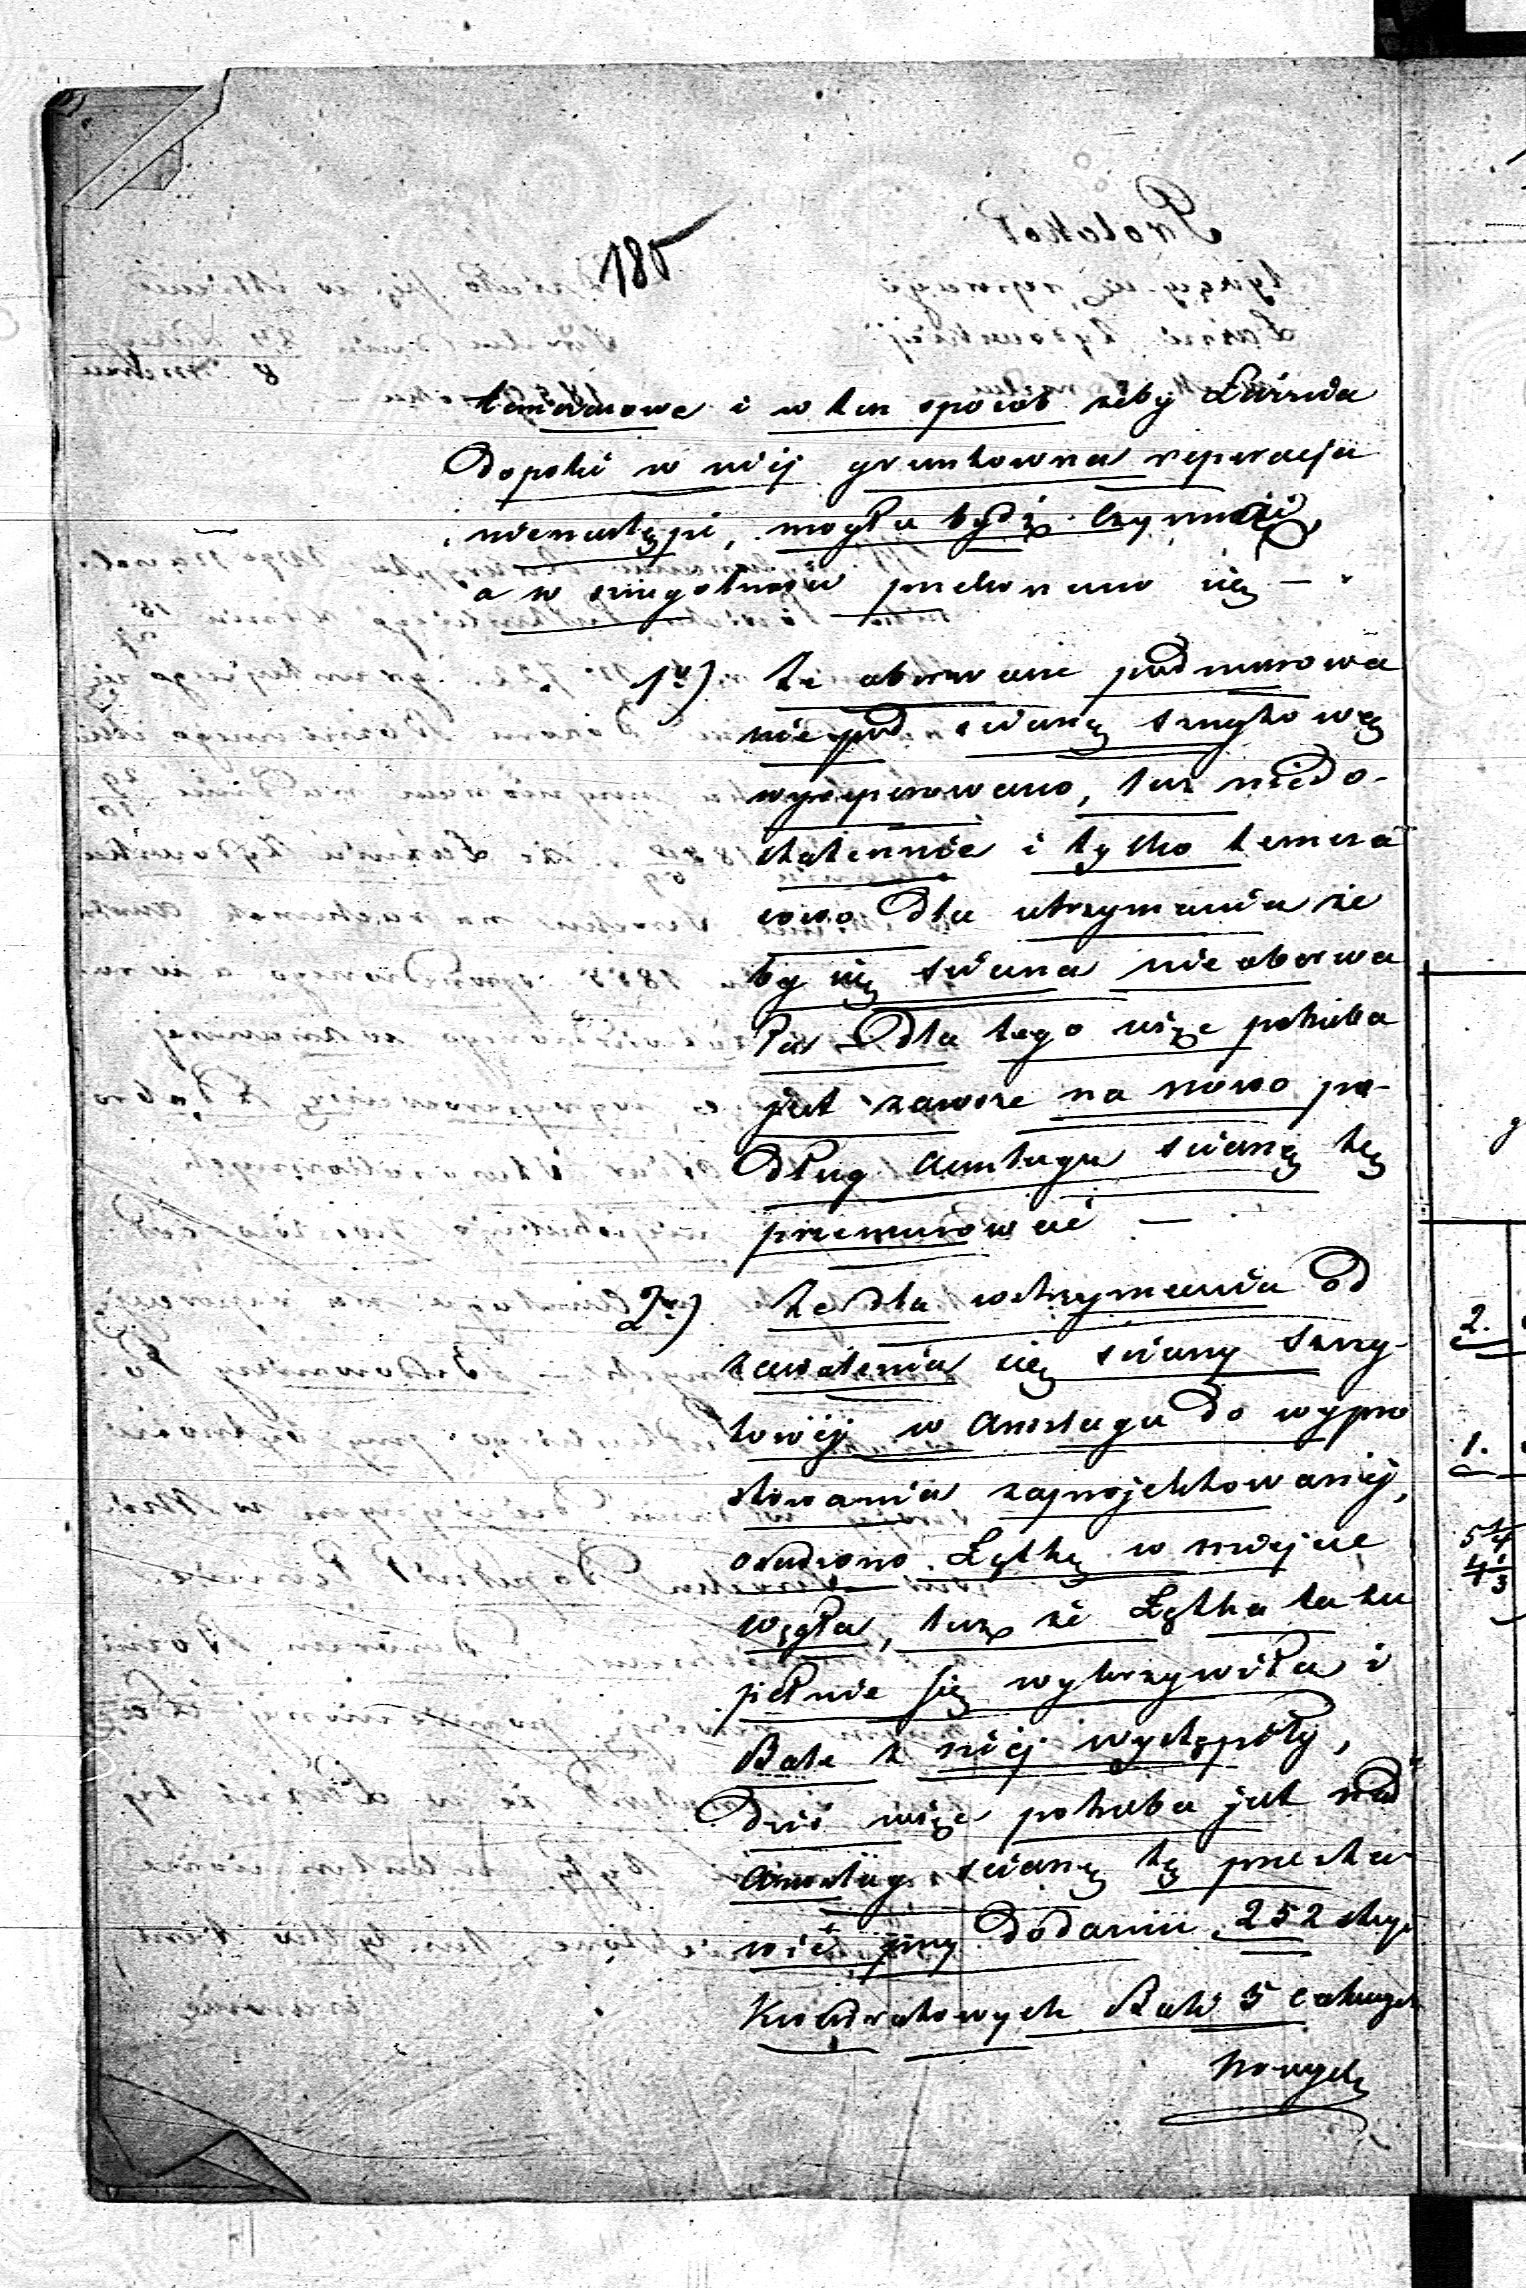 185
tymczasowe i w ten sposób żeby Łaźnia
dopoki w niéj gruntowna reperacja
nienastąpi, mogła bydź czynnąść
a w szczegolności przekonano się —
1o) że oberwanie podmurowa
nie pod scianą szczytową
wyreperowano, lecz niedo-
statecznie i tylko temcza
sowo dla utrzymania że
by się sciana nie oberwa
ła. Dla tego więc potrzeba
jest zawsze na nowo po-
dług Anszlagu scianę tę
przemurować —
2o) że dla wstrzymania od
zawalenia się sciany szczy-
towéj w Anszlagu do wypro
stowania zaprojektowanéj,
osadzono Łątkę w miejsce
węgła, lecz że Łątka ta zu
pełnie się wykrzywiła i
Bale z niéj wystąpiły,
dziś więc potrzeba jak nad
Anszlag scianę tę przesta-
wić przy dodaniu 252 stóp
Kwadratowych Bali 5 calowych
nowych
2.
1.